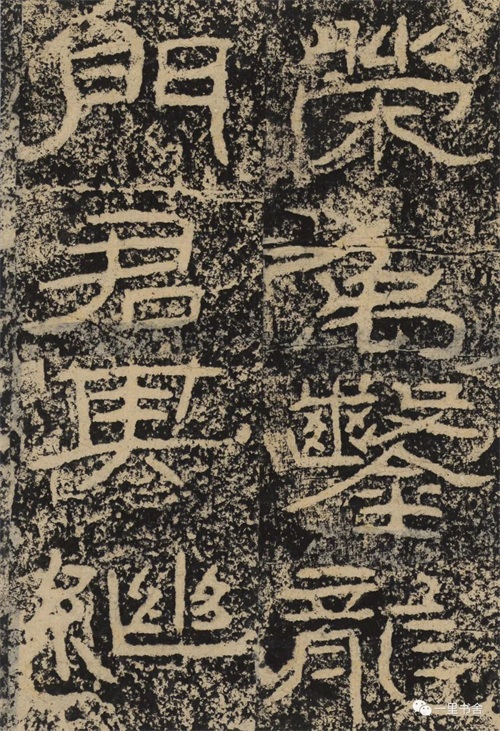 榮禹鑿龍
門君其繼
一里书舍